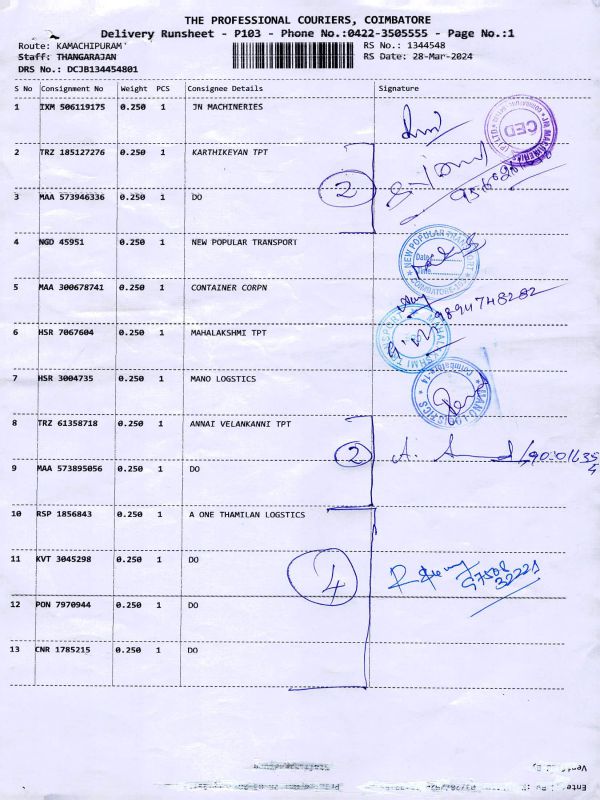 THE PROFESSIONAL COURIERS, COIMBATORE
Delivery Runsheet - P103 - Phone No.:0422-3505555 - Page No.:1
Route: KAMACHIPURAM RS No.: 1344548
Staff: THANGARAJAN RS Date: 28-Mar-2024
DRS No.: DCJB134454801
S No Consignment No Weight PCS Consignee Details Signature
1 IXM 506119175 0.250 1 JN MACHINERIES
2 TRZ 185127276 0.250 1 KARTHIKEYAN TPT
2
3 MAA 573946336 0.250 1 DO
4 NGD 45951 0.250 1 NEW POPULAR TRANSPORT
NEW POPULAR TRANSPORT
Date
Time
5 MAA 300678741 0.250 1 CONTAINER CORPN
9894748282
6 HSR 7067604 0.250 1 MAHALAKSHMI TPT
7 HSR 3004735 0.250 1 MANO LOGSTICS
8 TRZ 61358718 0.250 1 ANNAI VELANKANNI TPT
2
9 MAA 573895056 0.250 1 DO
10 RSP 1856843 0.250 1 A ONE THAMILAN LOGSTICS
11 KVT 3045298 0.250 1 DO
4
97508
32221
12 PON 7970944 0.250 1 DO
13 CNR 1785215 0.250 1 DO